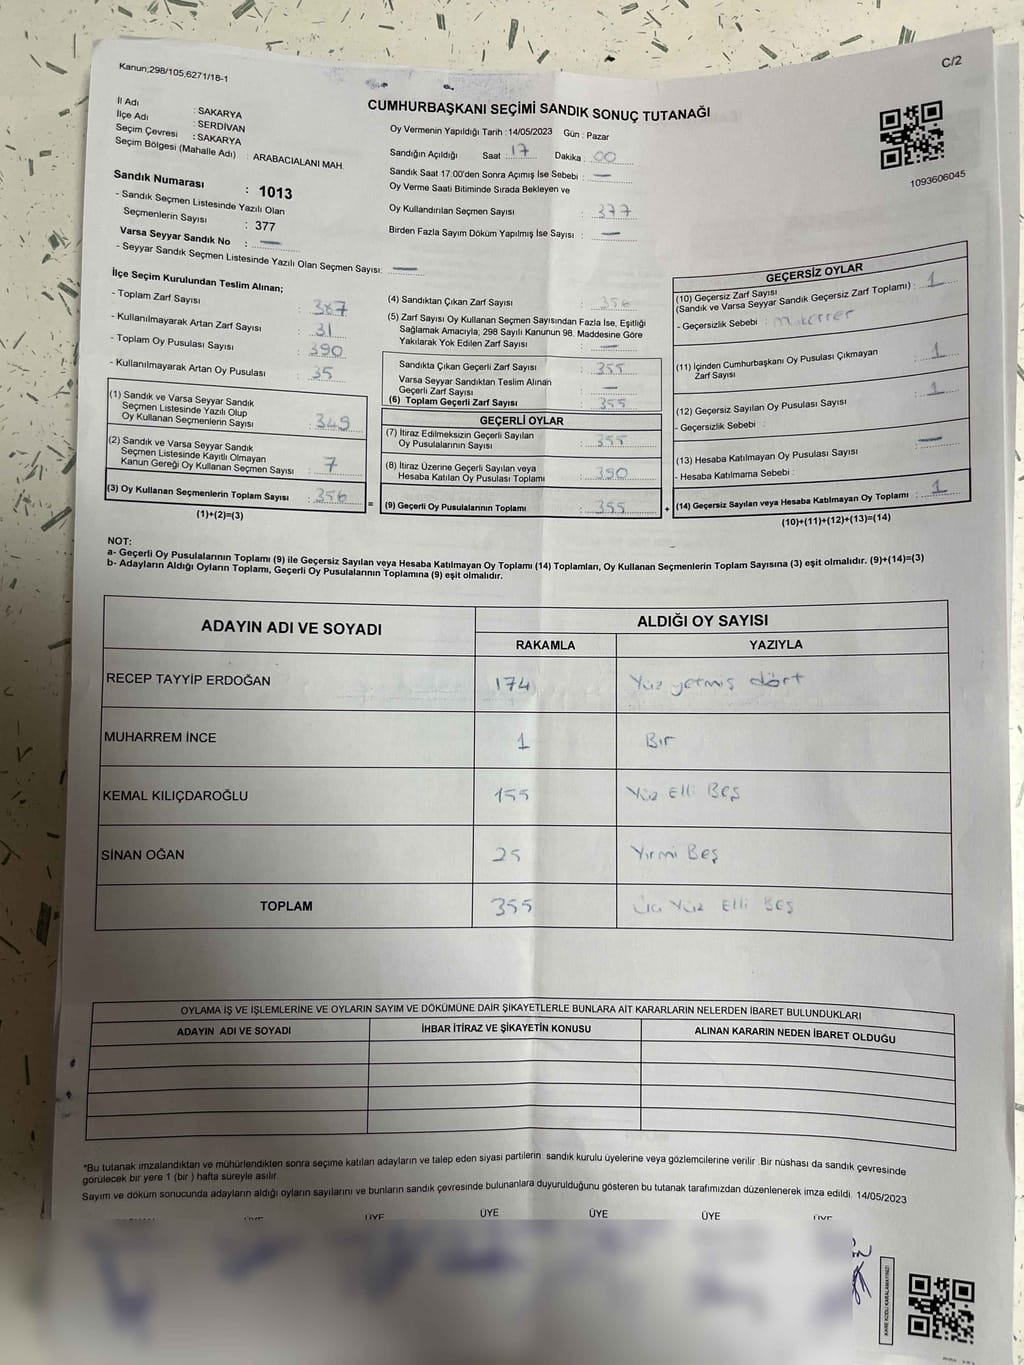 Kanun;298/105,6271/18-1
C/2
CUMHURBAŞKANI SEÇİMİ SANDIK SONUÇ TUTANAĞI
İl Adı : SAKARYA
İlçe Adı : SERDİVAN
Seçim Çevresi : SAKARYA
Seçim Bölgesi (Mahalle Adı) : ARABACIALANI MAH.
Oy Vermenin Yapıldığı Tarih : 14/05/2023 Gün : Pazar
Sandığın Açıldığı Saat : 17 Dakika : 00
Sandık Saat 17:00'den Sonra Açımış İse Sebebi : —
Oy Verme Saati Bitiminde Sırada Bekleyen ve
Oy Kullandırılan Seçmen Sayısı : 377
Birden Fazla Sayım Döküm Yapılmış İse Sayısı : —
1093606045
Sandık Numarası : 1013
- Sandık Seçmen Listesinde Yazılı Olan
Seçmenlerin Sayısı : 377
Varsa Seyyar Sandık No : —
- Seyyar Sandık Seçmen Listesinde Yazılı Olan Seçmen Sayısı: —
İlçe Seçim Kurulundan Teslim Alınan;
- Toplam Zarf Sayısı : 387
- Kullanılmayarak Artan Zarf Sayısı : 31
- Toplam Oy Pusulası Sayısı : 390
- Kullanılmayarak Artan Oy Pusulası : 35
(1) Sandık ve Varsa Seyyar Sandık
Seçmen Listesinde Yazılı Olup
Oy Kullanan Seçmenlerin Sayısı : 349
(2) Sandık ve Varsa Seyyar Sandık
Seçmen Listesinde Kayıtlı Olmayan
Kanun Gereği Oy Kullanan Seçmen Sayısı : 7
(3) Oy Kullanan Seçmenlerin Toplam Sayısı : 356
(1)+(2)=(3)
(4) Sandıktan Çıkan Zarf Sayısı : 356
(5) Zarf Sayısı Oy Kullanan Seçmen Sayısından Fazla İse, Eşitliği
Sağlamak Amacıyla; 298 Sayılı Kanunun 98. Maddesine Göre
Yakılarak Yok Edilen Zarf Sayısı : —
Sandıkta Çıkan Geçerli Zarf Sayısı : 355
Varsa Seyyar Sandıktan Teslim Alınan
Geçerli Zarf Sayısı : —
(6) Toplam Geçerli Zarf Sayısı : 355
GEÇERLİ OYLAR
(7) İtiraz Edilmeksizin Geçerli Sayılan
Oy Pusulalarının Sayısı : 355
(8) İtiraz Üzerine Geçerli Sayılan veya
Hesaba Katılan Oy Pusulası Toplamı : 390
= (9) Geçerli Oy Pusulalarının Toplamı : 355 +
GEÇERSİZ OYLAR
(10) Geçersiz Zarf Sayısı
(Sandık ve Varsa Seyyar Sandık Geçersiz Zarf Toplamı) : 1
- Geçersizlik Sebebi : mükerrer
(11) İçinden Cumhurbaşkanı Oy Pusulası Çıkmayan
Zarf Sayısı : 1
(12) Geçersiz Sayılan Oy Pusulası Sayısı : 1
- Geçersizlik Sebebi :
(13) Hesaba Katılmayan Oy Pusulası Sayısı : —
- Hesaba Katılmama Sebebi :
(14) Geçersiz Sayılan veya Hesaba Katılmayan Oy Toplamı : 1
(10)+(11)+(12)+(13)=(14)
NOT:
a- Geçerli Oy Pusulalarının Toplamı (9) ile Geçersiz Sayılan veya Hesaba Katılmayan Oy Toplamı (14) Toplamları, Oy Kullanan Seçmenlerin Toplam Sayısına (3) eşit olmalıdır. (9)+(14)=(3)
b- Adayların Aldığı Oyların Toplamı, Geçerli Oy Pusulalarının Toplamına (9) eşit olmalıdır.
ADAYIN ADI VE SOYADI
ALDIĞI OY SAYISI
RAKAMLA YAZIYLA
RECEP TAYYİP ERDOĞAN 174 Yüz yetmiş dört
MUHARREM İNCE 1 Bir
KEMAL KILIÇDAROĞLU 155 Yüz Elli Beş
SİNAN OĞAN 25 Yirmi Beş
TOPLAM 355 Üç Yüz Elli Beş
OYLAMA İŞ VE İŞLEMLERİNE VE OYLARIN SAYIM VE DÖKÜMÜNE DAİR ŞİKAYETLERLE BUNLARA AİT KARARLARIN NELERDEN İBARET BULUNDUKLARI
ADAYIN ADI VE SOYADI İHBAR İTİRAZ VE ŞİKAYETİN KONUSU ALINAN KARARIN NEDEN İBARET OLDUĞU
*Bu tutanak imzalandıktan ve mühürlendikten sonra seçime katılan adayların ve talep eden siyasi partilerin sandık kurulu üyelerine veya gözlemcilerine verilir. Bir nüshası da sandık çevresinde
görülecek bir yere 1 (bir ) hafta süreyle asılır.
Sayım ve döküm sonucunda adayların aldığı oyların sayılarını ve bunların sandık çevresinde bulunanlara duyurulduğunu gösteren bu tutanak tarafımızdan düzenlenerek imza edildi. 14/05/2023
ÜYE ÜYE ÜYE ÜYE ÜYE ÜYE